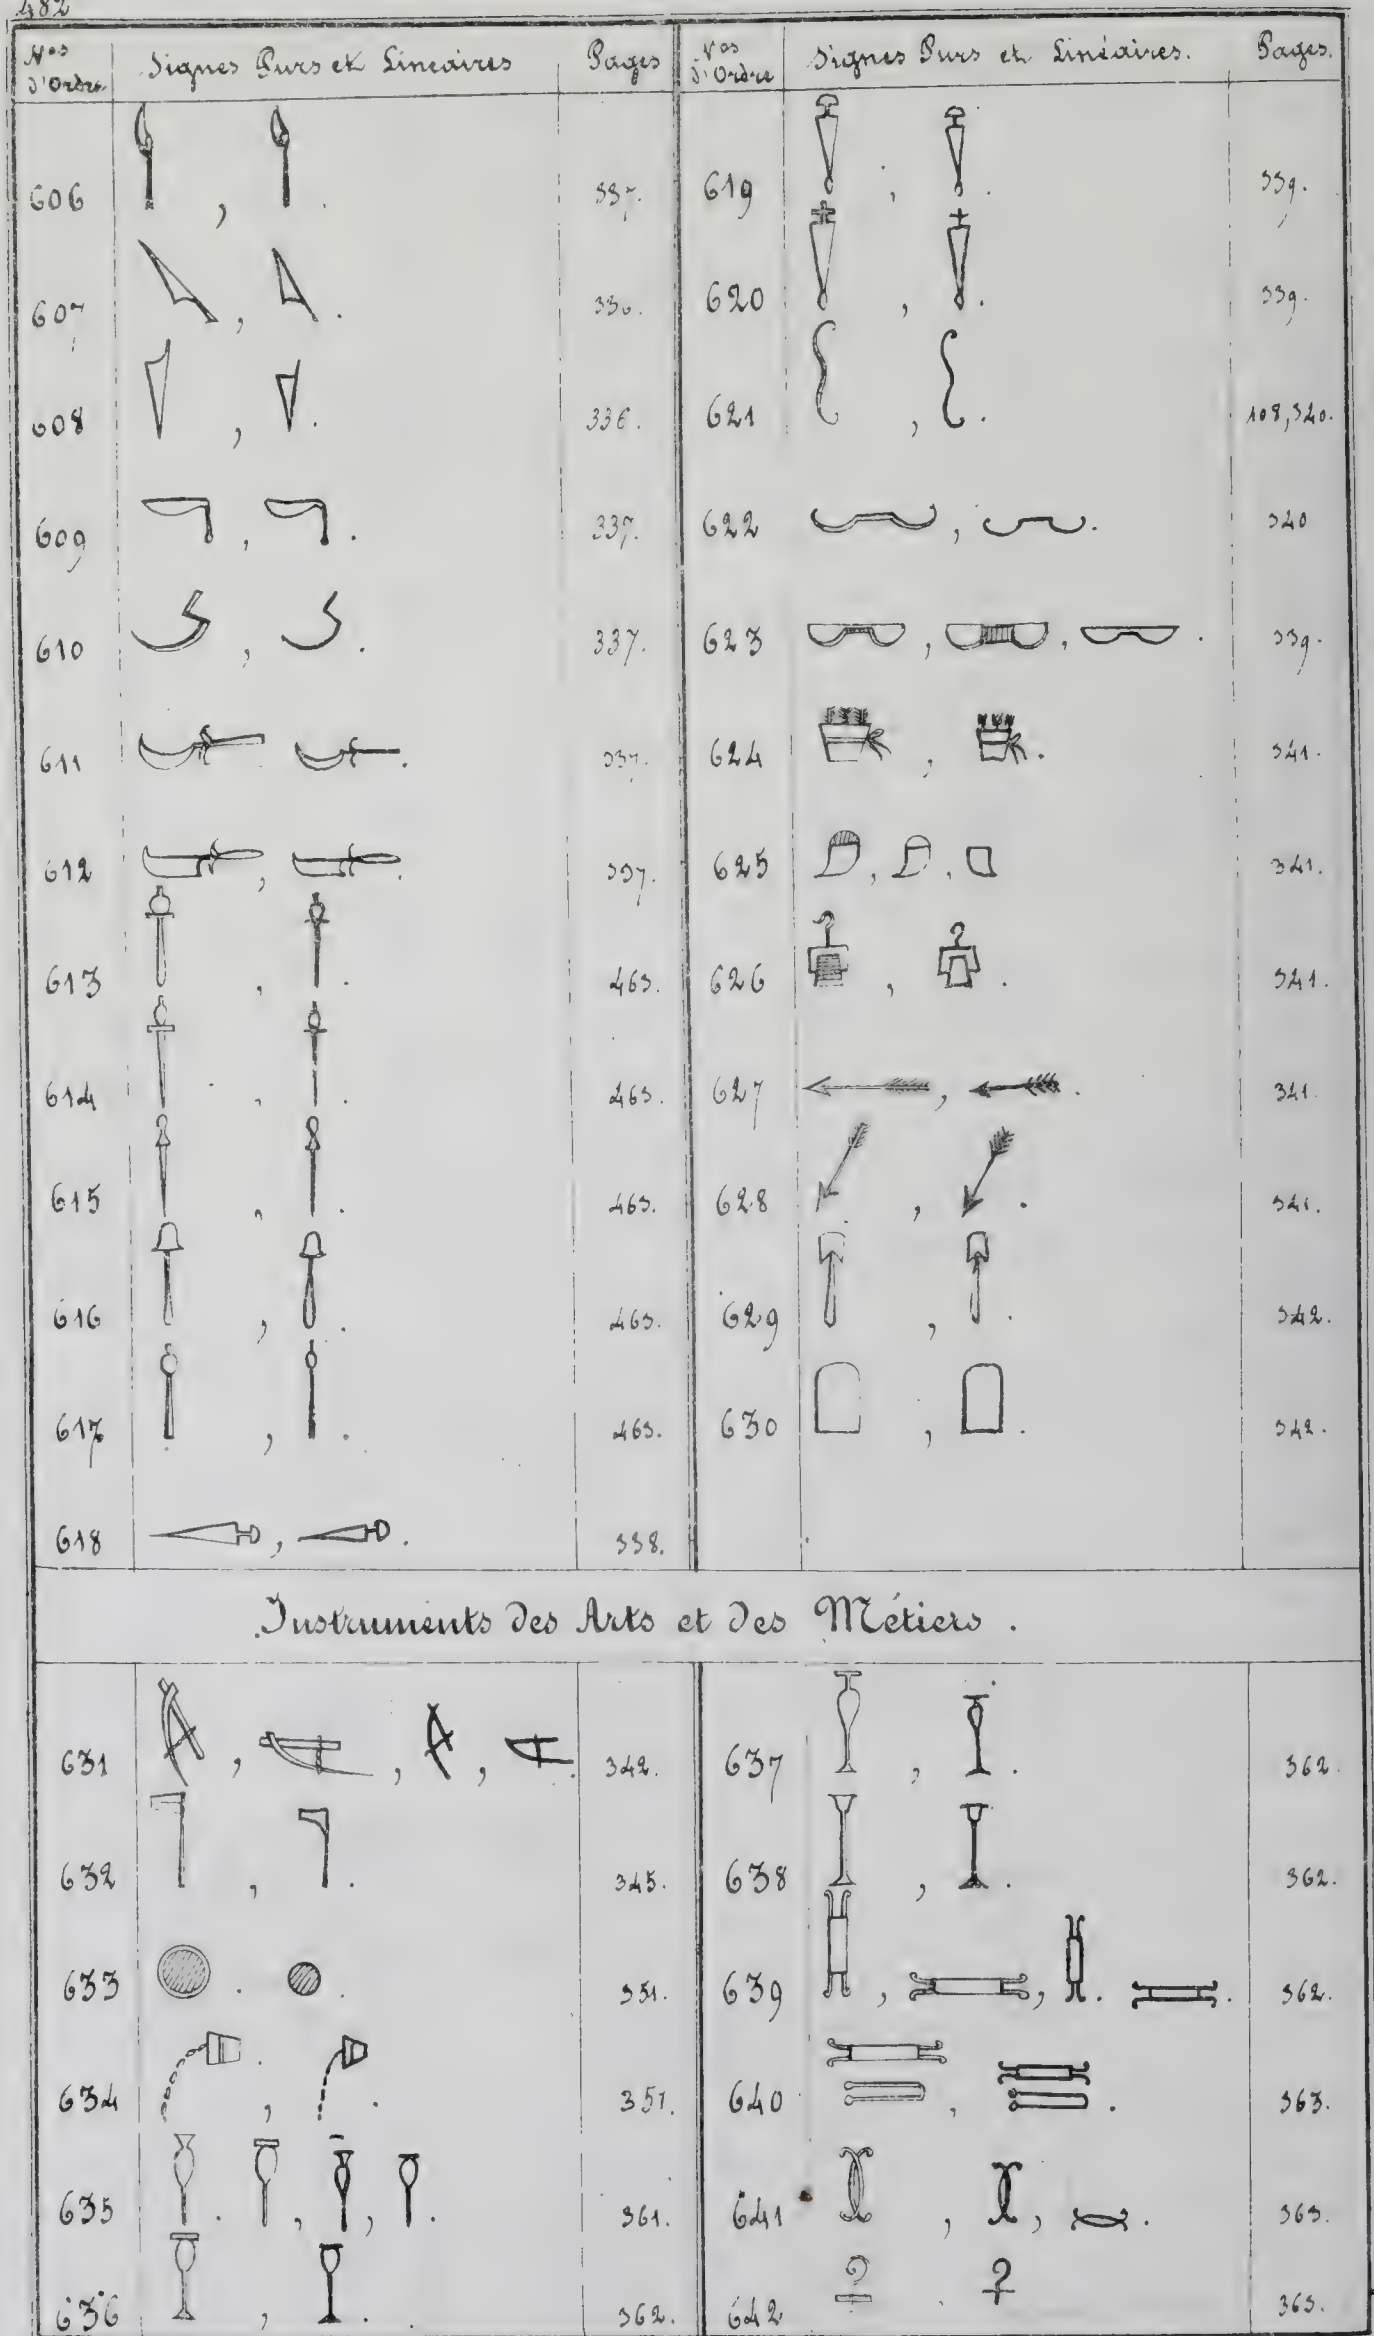 482
Nos d'Ordre Signes Purs et Linéaires Pages
606 , . 337.
607 , . 336.
608 , . 336.
609 , . 337.
610 , . 337.
611 . 337.
612 , . 337.
613 , . 463.
614 , . 463.
615 , . 463.
616 , . 463.
617 , . 463.
618 , . 338.
Nos d'Ordre Signes Purs et Linéaires. Pages.
619 , . 339.
620 , . 339.
621 , . 108, 340.
622 , . 340
623 , , . 339.
624 , . 341.
625 , , 341.
626 , . 341.
627 , . 341.
628 , . 341.
629 , . 342.
630 , . 342.
Instruments des Arts et des Métiers.
631 , , , . 342.
632 , . 345.
633 . . 351.
634 , . 351.
635 . , , . 361.
636 , . 362.
637 , . 362.
638 , . 362.
639 , , . . 362.
640 , . 363.
641 , , . 363.
642 363.